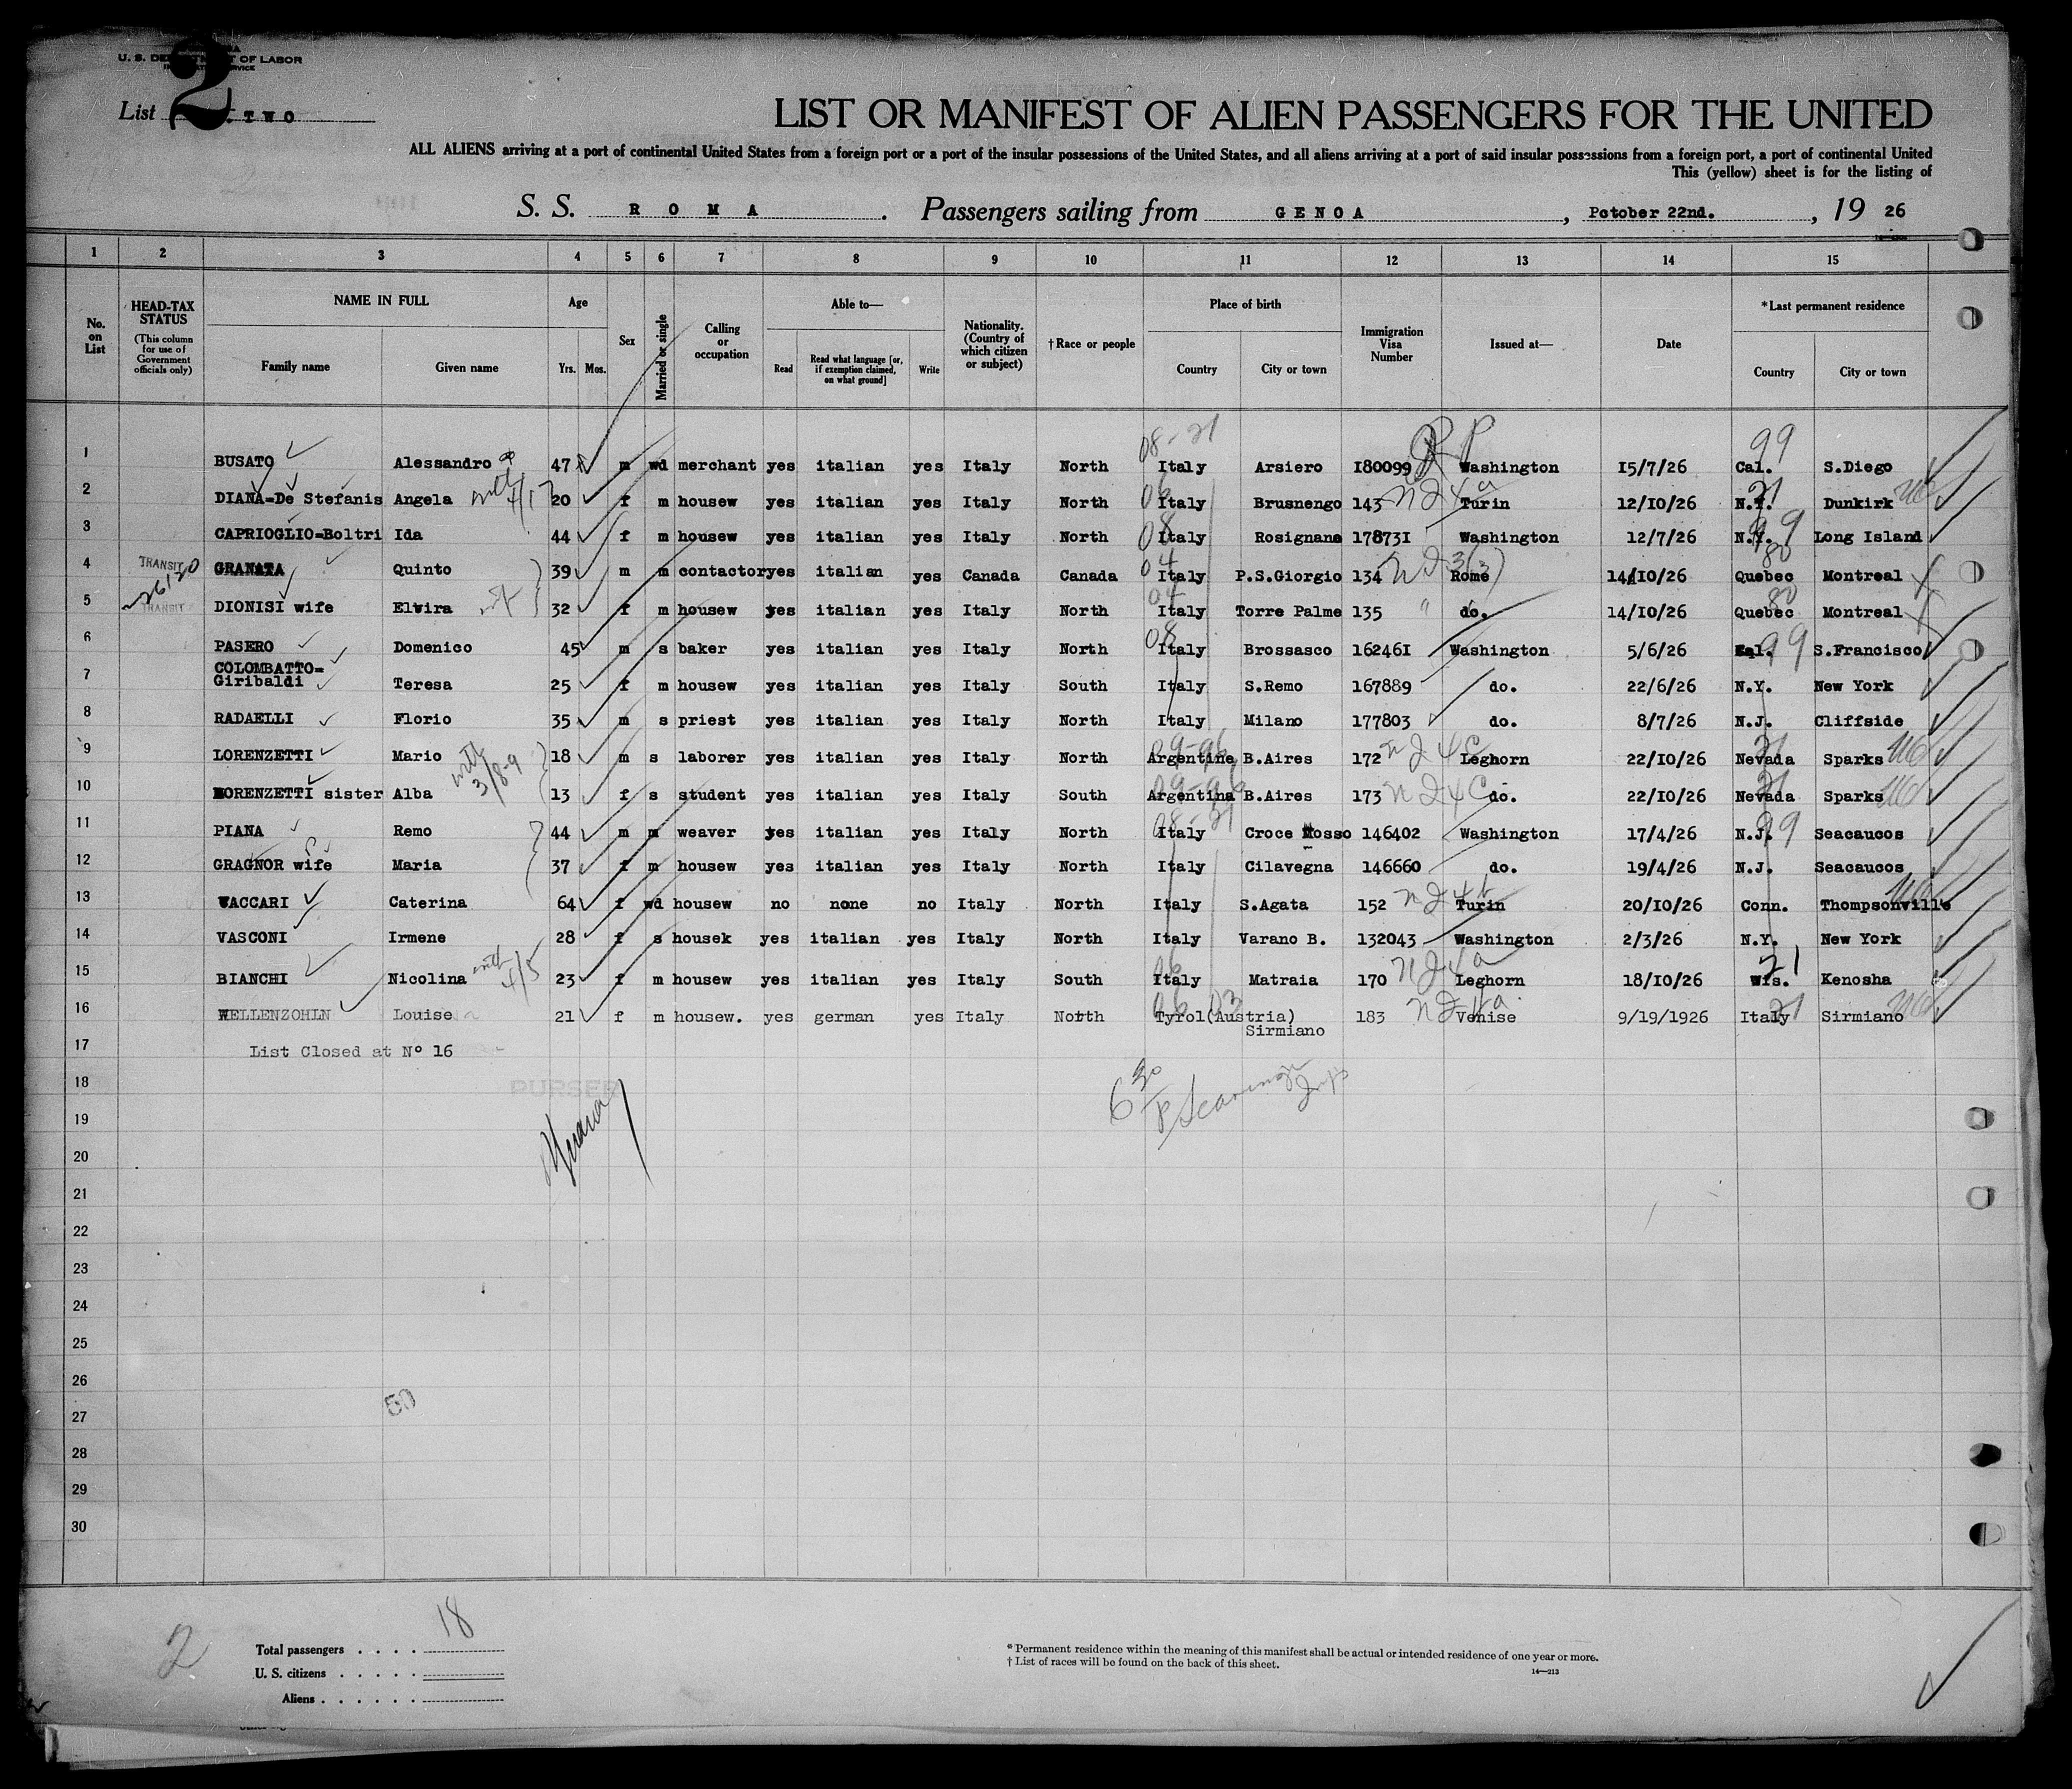 U. S. DEPARTMENT OF LABOR
List 2 TWO
LIST OR MANIFEST OF ALIEN PASSENGERS FOR THE UNITED
ALL ALIENS arriving at a port of continental United States from a foreign port or a port of the insular possessions of the United States, and all aliens arriving at a port of said insular possessions from a foreign port, a port of continental United
This (yellow) sheet is for the listing of
S. S. ROMA . Passengers sailing from GENOA , Pctober 22nd. , 19 26
1 2 3 4 5 6 7 8 9 10 11 12 13 14 15
No. on List
HEAD-TAX STATUS (This column for use of Government officials only)
NAME IN FULL
Family name Given name
Age
Yrs. Mos.
Sex
Married or single
Calling or occupation
Able to—
Read Read what language [or, if exemption claimed, on what ground] Write
Nationality. (Country of which citizen or subject)
†Race or people
Place of birth
Country City or town
Immigration Visa Number
Issued at—
Date
*Last permanent residence
Country City or town
08-21 RP 99
1 BUSATO Alessandro 47 m wd merchant yes italian yes Italy North Italy Arsiero I80099 Washington I5/7/26 Cal. S.Diego
2 DIANA=De Stefanis Angela 20 f m housew yes italian yes Italy North Italy Brusnengo 143 Turin 12/10/26 N.Y. Dunkirk
3 CAPRIOGLIO=Boltri Ida 44 f m housew yes italian yes Italy North Italy Rosignano 17873I Washington 12/7/26 N.Y. Long Island
4 TRANSIT GRANATA Quinto 39 m m contactor yes italian yes Canada Canada Italy P.S.Giorgio 134 Rome 14/10/26 Quebec Montreal
5 TRANSIT DIONISI wife Elvira 32 f m housew yes italian yes Italy North Italy Torre Palme 135 " do. 14/10/26 Quebec Montreal
6 PASERO Domenico 45 m s baker yes italian yes Italy North Italy Brossasco 16246I Washington 5/6/26 Cal. S.Francisco
7 COLOMBATTO=
Giribaldi Teresa 25 f m housew yes italian yes Italy South Italy S.Remo 167889 do. 22/6/26 N.Y. New York
8 RADAELLI Florio 35 m s priest yes italian yes Italy North Italy Milano 177803 do. 8/7/26 N.J. Cliffside
9 LORENZETTI Mario 18 m s laborer yes italian yes Italy North Argentine B.Aires 172 Leghorn 22/10/26 Nevada Sparks
10 LORENZETTI sister Alba 13 f s student yes italian yes Italy South Argentina B.Aires 173 do. 22/10/26 Nevada Sparks
11 PIANA Remo 44 m m weaver yes italian yes Italy North Italy Croce Mosso 146402 Washington 17/4/26 N.J. Seacaucos
12 GRAGNOR wife Maria 37 f m housew yes italian yes Italy North Italy Cilavegna 146660 do. 19/4/26 N.J. Seacaucos
13 VACCARI Caterina 64 f wd housew no none no Italy North Italy S.Agata 152 Turin 20/10/26 Conn. Thompsonville
14 VASCONI Irmene 28 f s housek yes italian yes Italy North Italy Varano B. 132043 Washington 2/3/26 N.Y. New York
15 BIANCHI Nicolina 23 f m housew yes italian yes Italy South Italy Matraia 170 Leghorn 18/10/26 Wis. Kenosha
16 WELLENZOHLN Louise 21 f m housew. yes german yes Italy North Tyrol(Austria) 183 Venise 9/19/1926 Italy Sirmiano
Sirmiano
17 List Closed at Nº 16
18 PURSER
19
20
21
22
23
24
25
26
27 50
28
29
30
2
Total passengers . . . . 18
U. S. citizens . . . . .
Aliens . . . . . .
* Permanent residence within the meaning of this manifest shall be actual or intended residence of one year or more.
† List of races will be found on the back of this sheet.
14—213